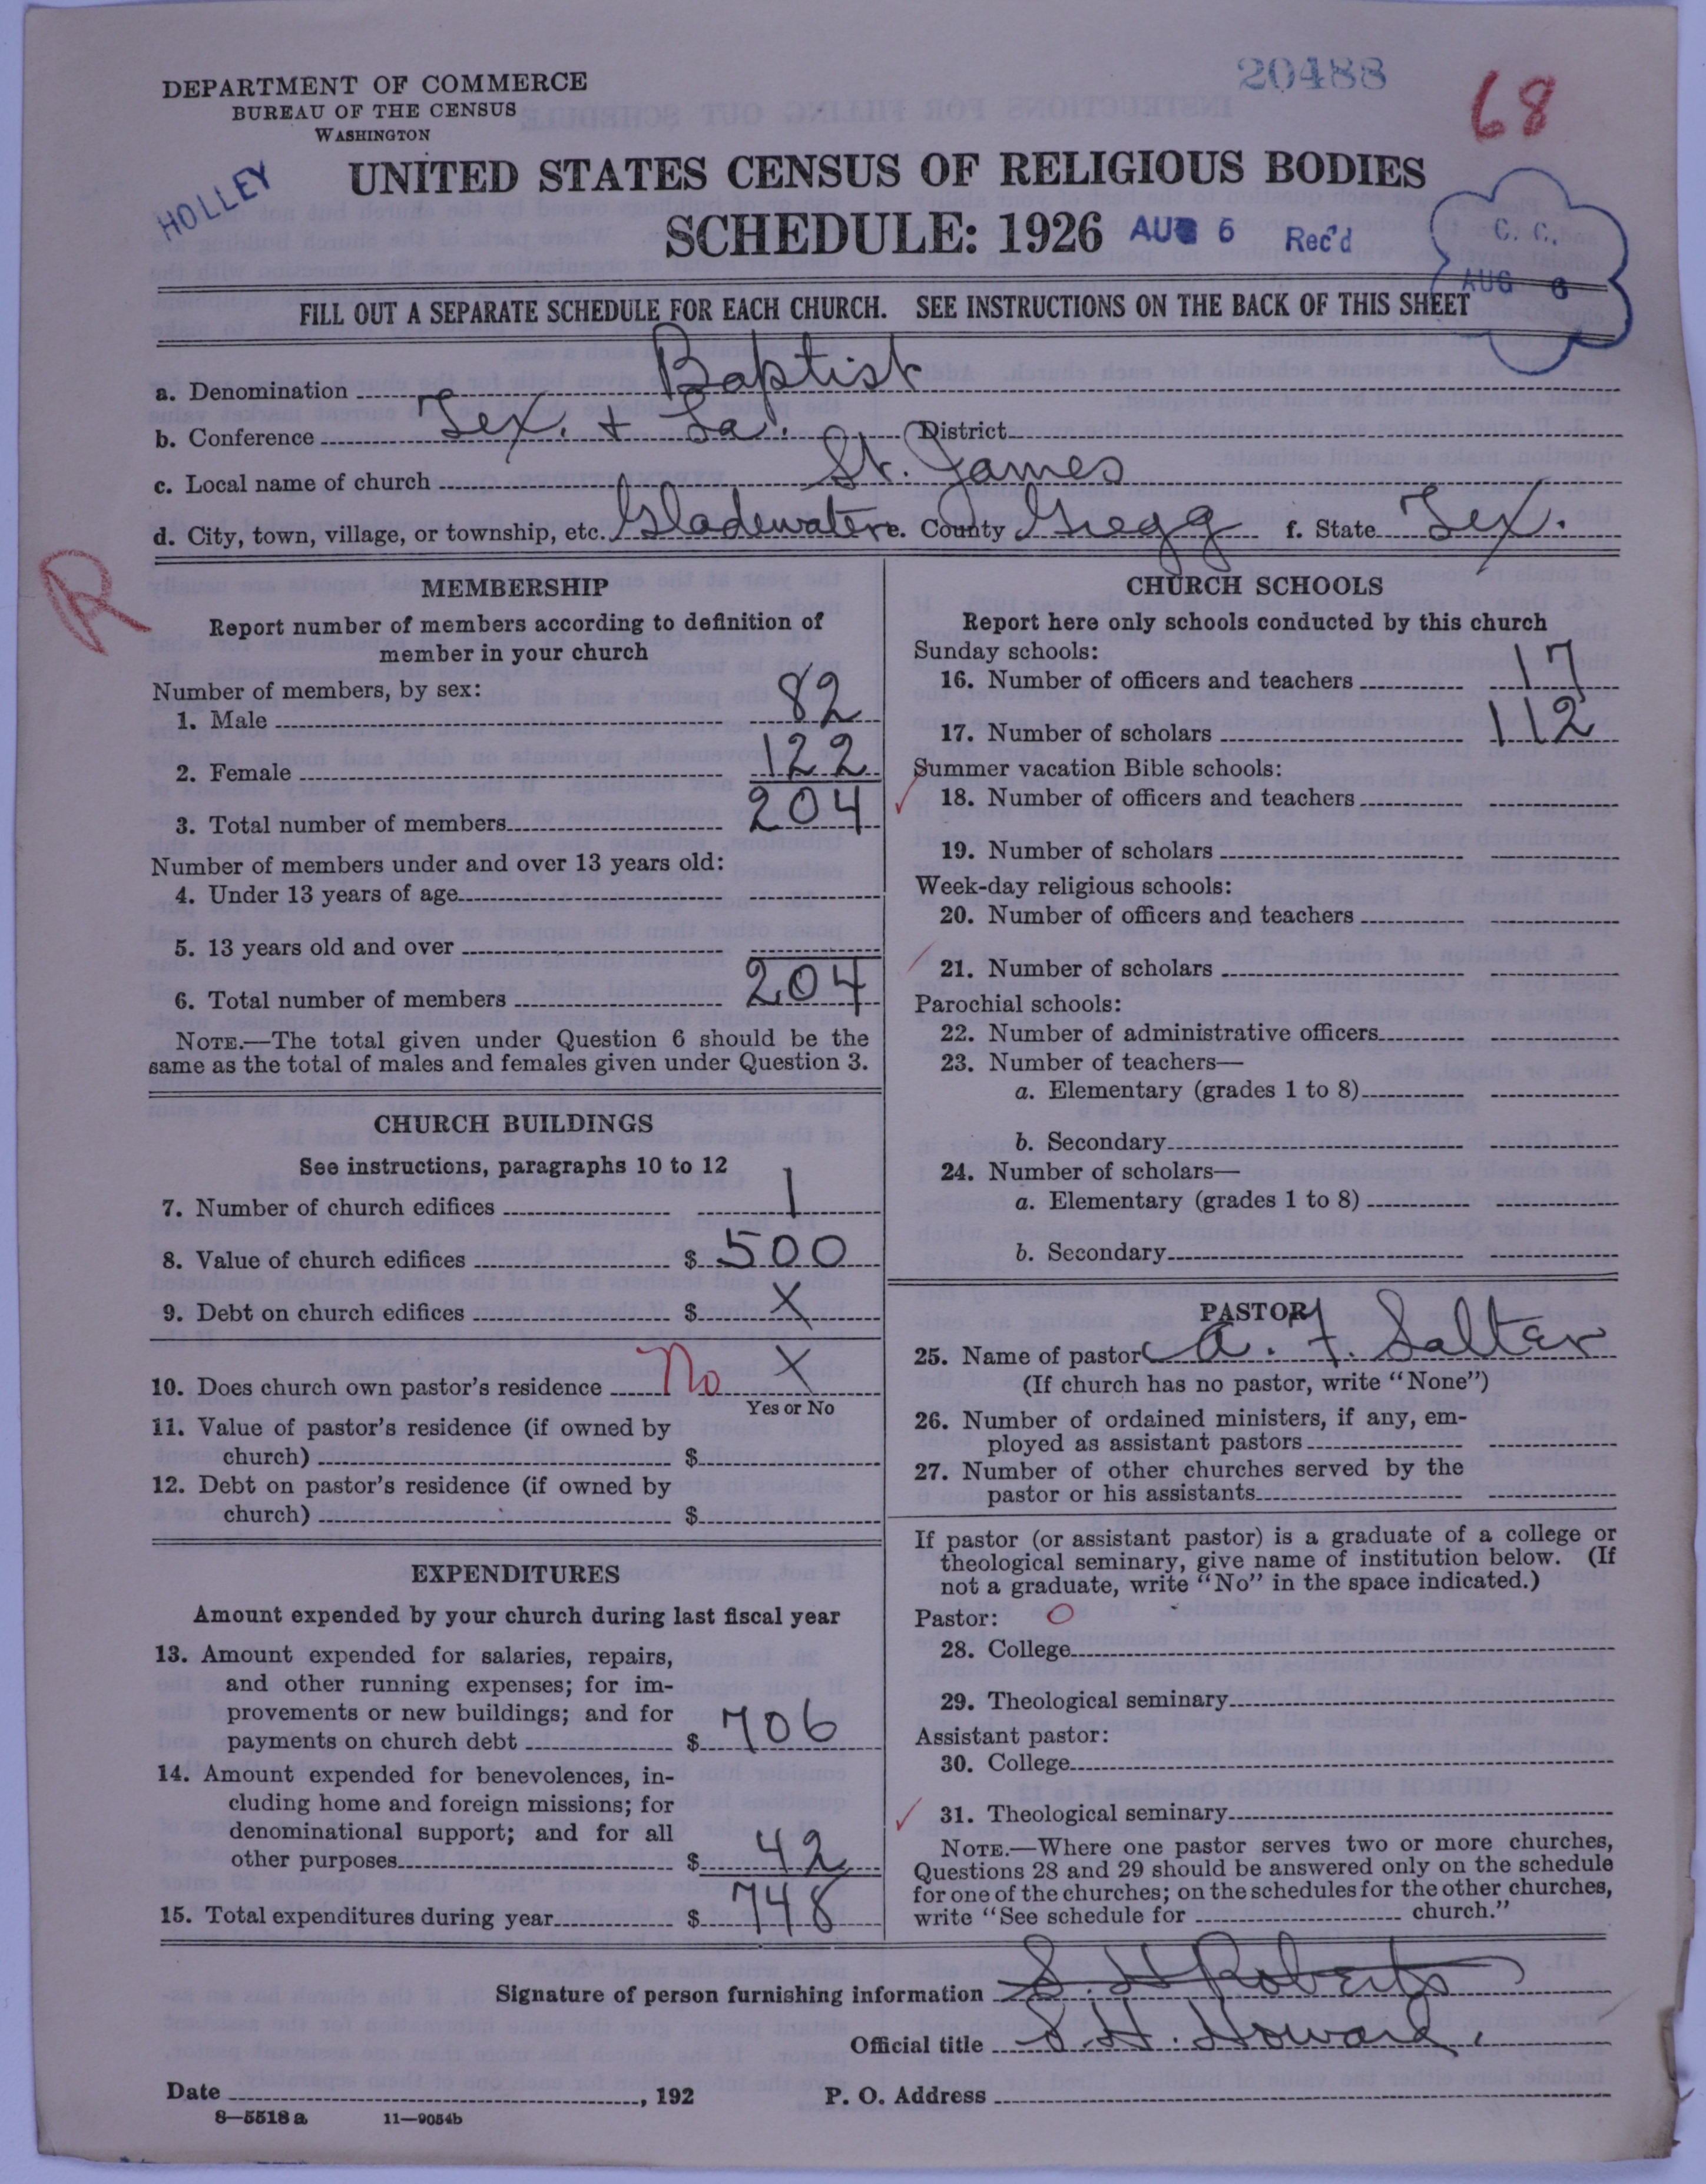 20488
68
DEPARTMENT OF COMMERCE
BUREAU OF THE CENSUS
WASHINGTON
HOLLEY
UNITED STATES CENSUS OF RELIGIOUS BODIES
SCHEDULE: 1926
AUG 6 Rec'd
C. C.
AUG 6
FILL OUT A SEPARATE SCHEDULE FOR EACH CHURCH. SEE INSTRUCTIONS ON THE BACK OF THIS SHEET
a. Denomination Baptist
b. Conference Tex. + La. District
c. Local name of church St. James
d. City, town, village, or township, etc. Gladewater e. County Gregg f. State Tex.
R
MEMBERSHIP
Report number of members according to definition of
member in your church
Number of members, by sex:
1. Male 82
2. Female 122
3. Total number of members 204
Number of members under and over 13 years old:
4. Under 13 years of age
5. 13 years old and over
6. Total number of members 204
NOTE.—The total given under Question 6 should be the
same as the total of males and females given under Question 3.
CHURCH BUILDINGS
See instructions, paragraphs 10 to 12
7. Number of church edifices 1
8. Value of church edifices $ 500
9. Debt on church edifices $ X
10. Does church own pastor's residence No X
Yes or No
11. Value of pastor's residence (if owned by
church) $
12. Debt on pastor's residence (if owned by
church) $
EXPENDITURES
Amount expended by your church during last fiscal year
13. Amount expended for salaries, repairs,
and other running expenses; for im-
provements or new buildings; and for
payments on church debt $ 706
14. Amount expended for benevolences, in-
cluding home and foreign missions; for
denominational support; and for all
other purposes $ 42
15. Total expenditures during year $ 748
CHURCH SCHOOLS
Report here only schools conducted by this church
Sunday schools:
16. Number of officers and teachers 17
17. Number of scholars 112
Summer vacation Bible schools:
18. Number of officers and teachers
19. Number of scholars
Week-day religious schools:
20. Number of officers and teachers
21. Number of scholars
Parochial schools:
22. Number of administrative officers
23. Number of teachers—
a. Elementary (grades 1 to 8)
b. Secondary
24. Number of scholars—
a. Elementary (grades 1 to 8)
b. Secondary
PASTOR
25. Name of pastor A. F. Salter
(If church has no pastor, write "None")
26. Number of ordained ministers, if any, em-
ployed as assistant pastors
27. Number of other churches served by the
pastor or his assistants
If pastor (or assistant pastor) is a graduate of a college or
theological seminary, give name of institution below. (If
not a graduate, write "No" in the space indicated.)
Pastor: O
28. College
29. Theological seminary
Assistant pastor:
30. College
31. Theological seminary
NOTE.—Where one pastor serves two or more churches,
Questions 28 and 29 should be answered only on the schedule
for one of the churches; on the schedules for the other churches,
write "See schedule for church."
Signature of person furnishing information S. H Roberts
Official title S. H. Howard.
Date , 192 P. O. Address
8—5518 a 11—9054b